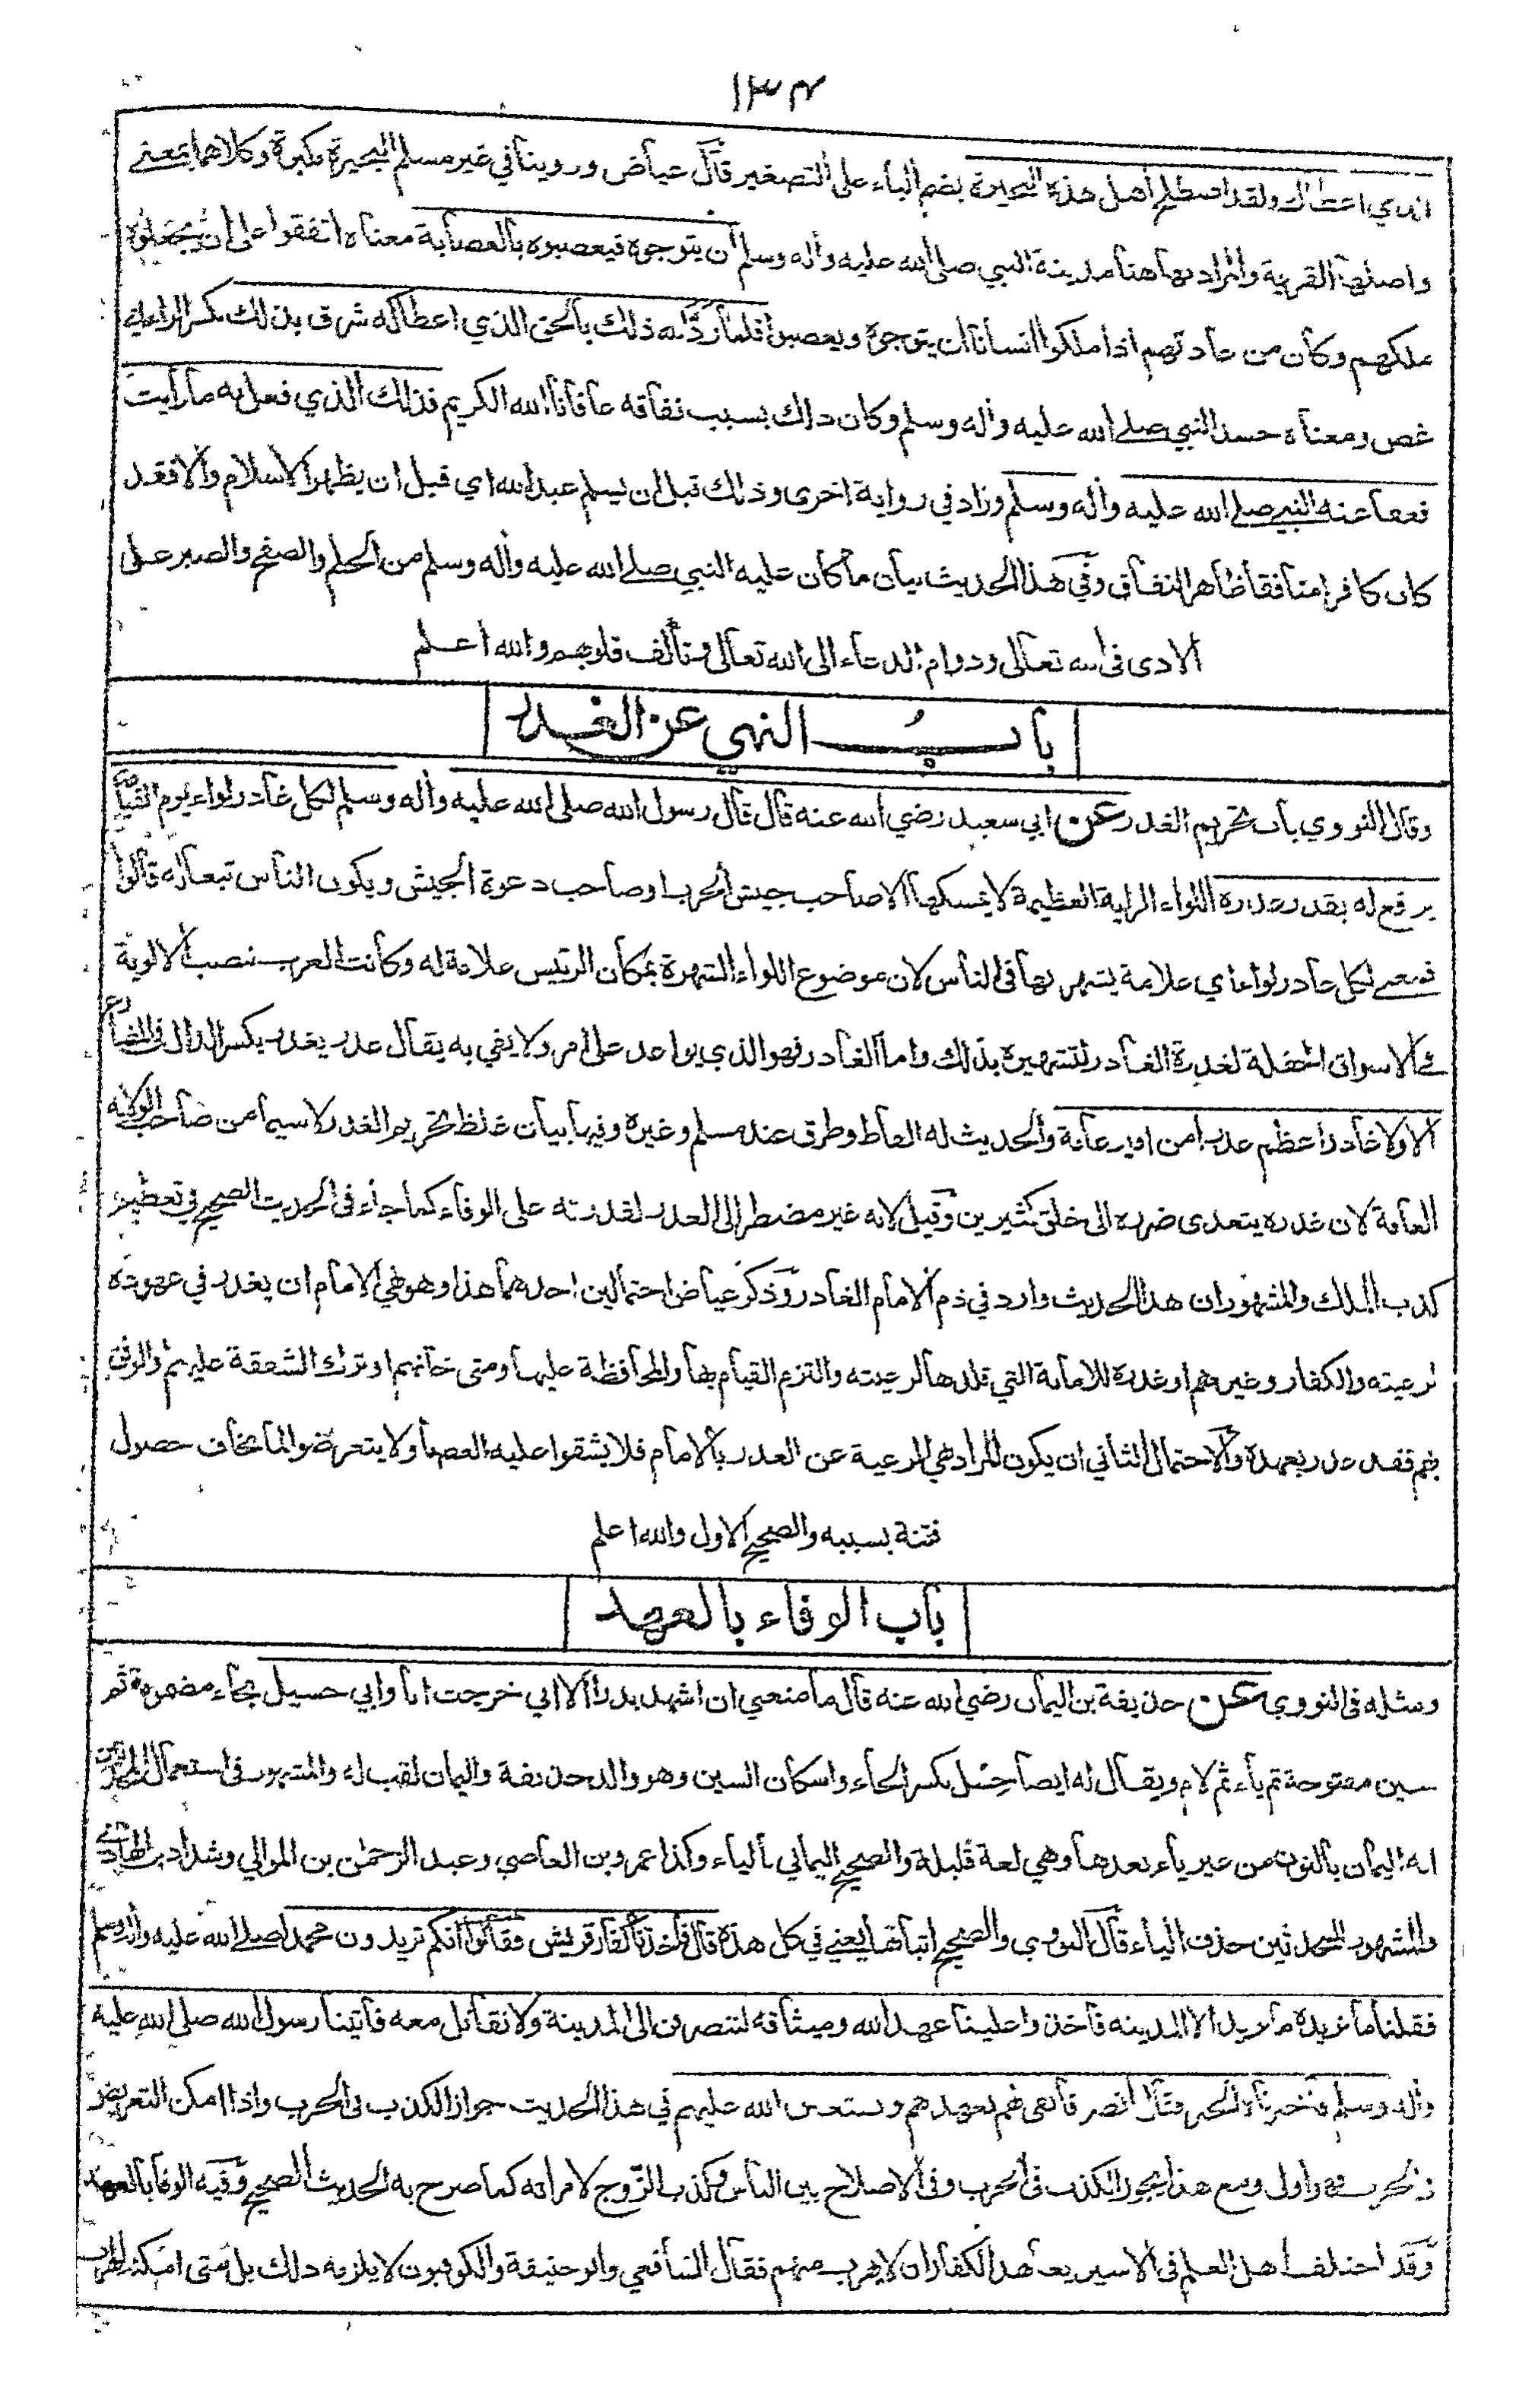 ١٣٤
الذي اعطاك ولقد اصطلح أهل هذه البحيرة بضم الباء على التصغير قال عياض وروينا في غير مسلم البحيرة مكبرة وكلاهما بمعنى
واصلها القرية والمراد بها هنا مدينة النبي صلى الله عليه وأله وسلم أن يتوجوه فيعصبوه بالعصابة معناه اتفقوا على أن يجعلوه
ملكهم وكان من عادتهم اذا ملكوا انسانا ان يتوجوه ويعصبوا فلما رد الله ذلك بالحق الذي اعطاكه شرق بذلك بكسر الراء اي
غص ومعناه حسد النبي صلى الله عليه وأله وسلم وكان ذلك بسبب نفاقه عافانا الله الكريم فذلك الذي فعل به ما رأيت
فعفا عنه النبي صلى الله عليه وأله وسلم وزاد في رواية اخرى وذلك قبل ان يسلم عبد الله اي قبل ان يظهر الاسلام والا فقد
كان كافرا منافقا ظاهر النفاق وفي هذا الحديث بيان ما كان عليه النبي صلى الله عليه وأله وسلم من الحلم والصفح والصبر على
الاذى في الله تعالى ودوام الدعاء الى الله تعالى وتألف قلوبهم والله اعلم
باب النهي عن الغدر
وقال النووي باب تحريم الغدر عن ابي سعيد رضي الله عنه قال قال رسول الله صلى الله عليه وأله وسلم لكل غادر لواء يوم القيامة
يرفع له بقدر غدره اللواء الراية العظيمة لا يمسكها الا صاحب جيش الحرب او صاحب دعوة الجيش ويكون الناس تبعا له قالوا
فمعنى لكل غادر لواء اي علامة يشهر بها في الناس لان موضوع اللواء الشهرة بمكان الرئيس علامة له وكانت العرب تنصب الالوية
في الاسواق الحفلة لغدرة الغادر لتشهيره بذلك واما الغادر فهو الذي يواعد على امر ولا يفي به يقال غدر يغدر بكسر الدال في المضارع
الا ولا غادر اعظم غدرا من امير عامة والحديث له الفاظ وطرق عند مسلم وغيره وفيها بيان غلظ تحريم الغدر لا سيما من صاحب الولاية
العامة لان غدره يتعدى ضرره الى خلق كثيرين وقيل لانه غير مضطر الى الغدر لقدرته على الوفاء كما جاء في الحديث الصحيح في تعظيم
كذب الملك والمشهور ان هذا الحديث وارد في ذم الامام الغادر وذكر عياض احتمالين احدهما هذا وهو نهي الامام ان يغدر في عهوده
لرعيته والكفار وغيرهم او غدره للامانة التي قلدها لرعيته والتزم القيام بها والمحافظة عليها ومتى خانهم او ترك الشفقة عليهم والرفق
بهم فقد غدر بعهده والاحتمال الثاني ان يكون المراد نهي الرعية عن الغدر بالامام فلا يشقوا عليه العصا ولا يتعرضوا لما يخاف حصول
فتنة بسببه والصحيح الاول والله اعلم
باب الوفاء بالعهد
ومثله في النووي عن حذيفة بن اليمان رضي الله عنه قال ما منعني ان اشهد بدرا الا اني خرجت انا وابي حسيل بحاء مضمومة ثم
سين مفتوحة ثم ياء ثم لام ويقال له ايضا حسل بكسر الحاء واسكان السين وهو والد حذيفة واليمان لقب له والمشهور في استعمال المحدثين
انه اليمان بالنون من غير ياء بعدها وهي لغة قليلة والصحيح اليماني بالياء وكذا عمرو بن العاصي وعبد الرحمن بن الموالي وشداد بن الهادي
والمشهور للمحدثين حذف الياء قال النووي والصحيح اثباتها يعني في كل هذه قال فأخذنا كفار قريش فقالوا انكم تريدون محمدا صلى الله عليه وأله وسلم
فقلنا ما نريده ما نريد الا المدينة فأخذوا علينا عهد الله وميثاقه لننصرفن الى المدينة ولا نقاتل معه فأتينا رسول الله صلى الله عليه
وأله وسلم فأخبرناه الخبر فقال انصرفا نفي لهم بعهدهم ونستعين الله عليهم في هذا الحديث جواز الكذب في الحرب واذا امكن التعريض
في الحرب فهو اولى ومع هذا يجوز الكذب في الحرب وفي الاصلاح بين الناس وكذب الزوج لامراته كما صرح به الحديث الصحيح وفيه الوفا بالعهد
وقد اختلف اهل العلم في الاسير يعاهد الكفار ان لا يهرب منهم فقال الشافعي وابو حنيفة والكوفيون لا يلزمه ذلك بل متى امكنه الهرب